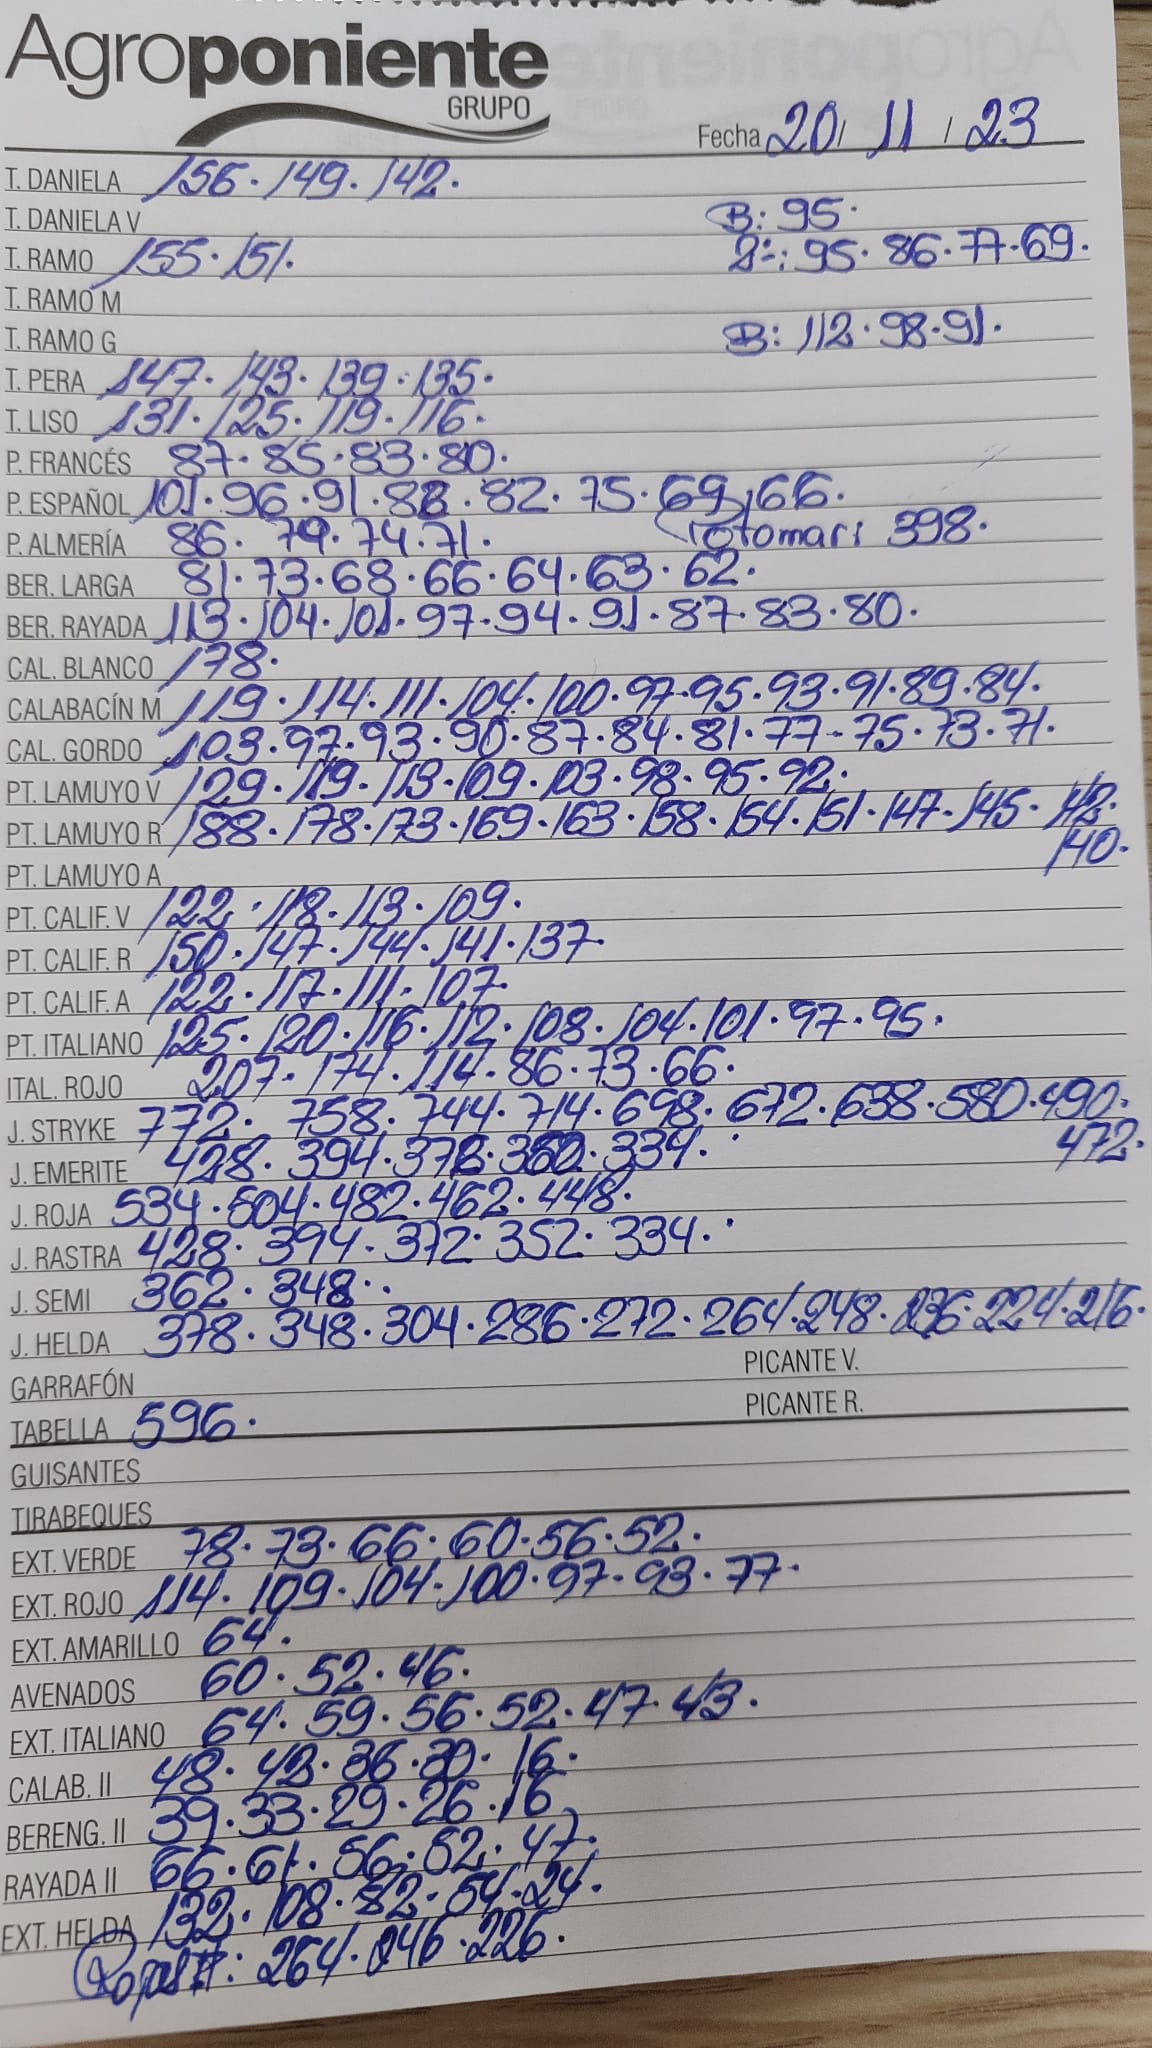 Agroponiente
GRUPO
Fecha 20/ 11 / 23
T. DANIELA 156. 149. 142.
T. DANIELA V B: 95.
T. RAMO 155. 151. 2ª: 95. 86. 77. 69.
T. RAMO M
T. RAMO G B: 112. 98. 91.
T. PERA 147. 143. 139. 135.
T. LISO 131. 125. 119. 116.
P. FRANCÉS 87. 85. 83. 80.
P. ESPAÑOL 101. 96. 91. 88. 82. 75. 69, 66.
P. ALMERÍA 86. 79. 74. 71. 398.
BER. LARGA 81. 73. 68. 66. 64. 63. 62.
BER. RAYADA 113. 104. 101. 97. 94. 91. 87. 83. 80.
CAL. BLANCO 178.
CALABACÍN M 119. 114. 111. 104. 100. 97. 95. 93. 91. 89. 84.
CAL. GORDO 103. 97. 93. 90. 87. 84. 81. 77. 75. 73. 71.
PT. LAMUYO V 129. 119. 113. 109. 103. 98. 95. 92.
PT. LAMUYO R 188. 178. 173. 169. 163. 158. 154. 151. 147. 145. 142.
140.
PT. LAMUYO A
PT. CALIF. V 122. 118. 113. 109.
PT. CALIF. R 150. 147. 144. 141. 137.
PT. CALIF. A 122. 117. 111. 107.
PT. ITALIANO 125. 120. 116. 112. 108. 104. 101. 97. 95.
ITAL. ROJO 207. 174. 114. 86. 73. 66.
J. STRYKE 772. 758. 744. 714. 698. 672. 638. 580. 490.
472.
J. EMERITE 428. 394. 334.
J. ROJA 534. 504. 482. 462. 448.
J. RASTRA 428. 394. 372. 352. 334.
J. SEMI 362. 348.
J. HELDA 378. 348. 304. 286. 272. 264. 248. 236. 224. 216.
GARRAFÓN PICANTE V.
TABELLA 596. PICANTE R.
GUISANTES
TIRABEQUES
EXT. VERDE 78. 73. 66. 60. 56. 52.
EXT. ROJO 114. 109. 104. 100. 97. 93. 77.
EXT. AMARILLO 64.
AVENADOS 60. 52. 46.
EXT. ITALIANO 64. 59. 56. 52. 47. 43.
CALAB. II 48. 36. 30. 16.
BERENG. II 39. 33. 29. 26. 16
RAYADA II 66. 61. 56. 52. 47.
EXT. HELDA 132. 108. 82. 54. 24.
264. 246. 226.